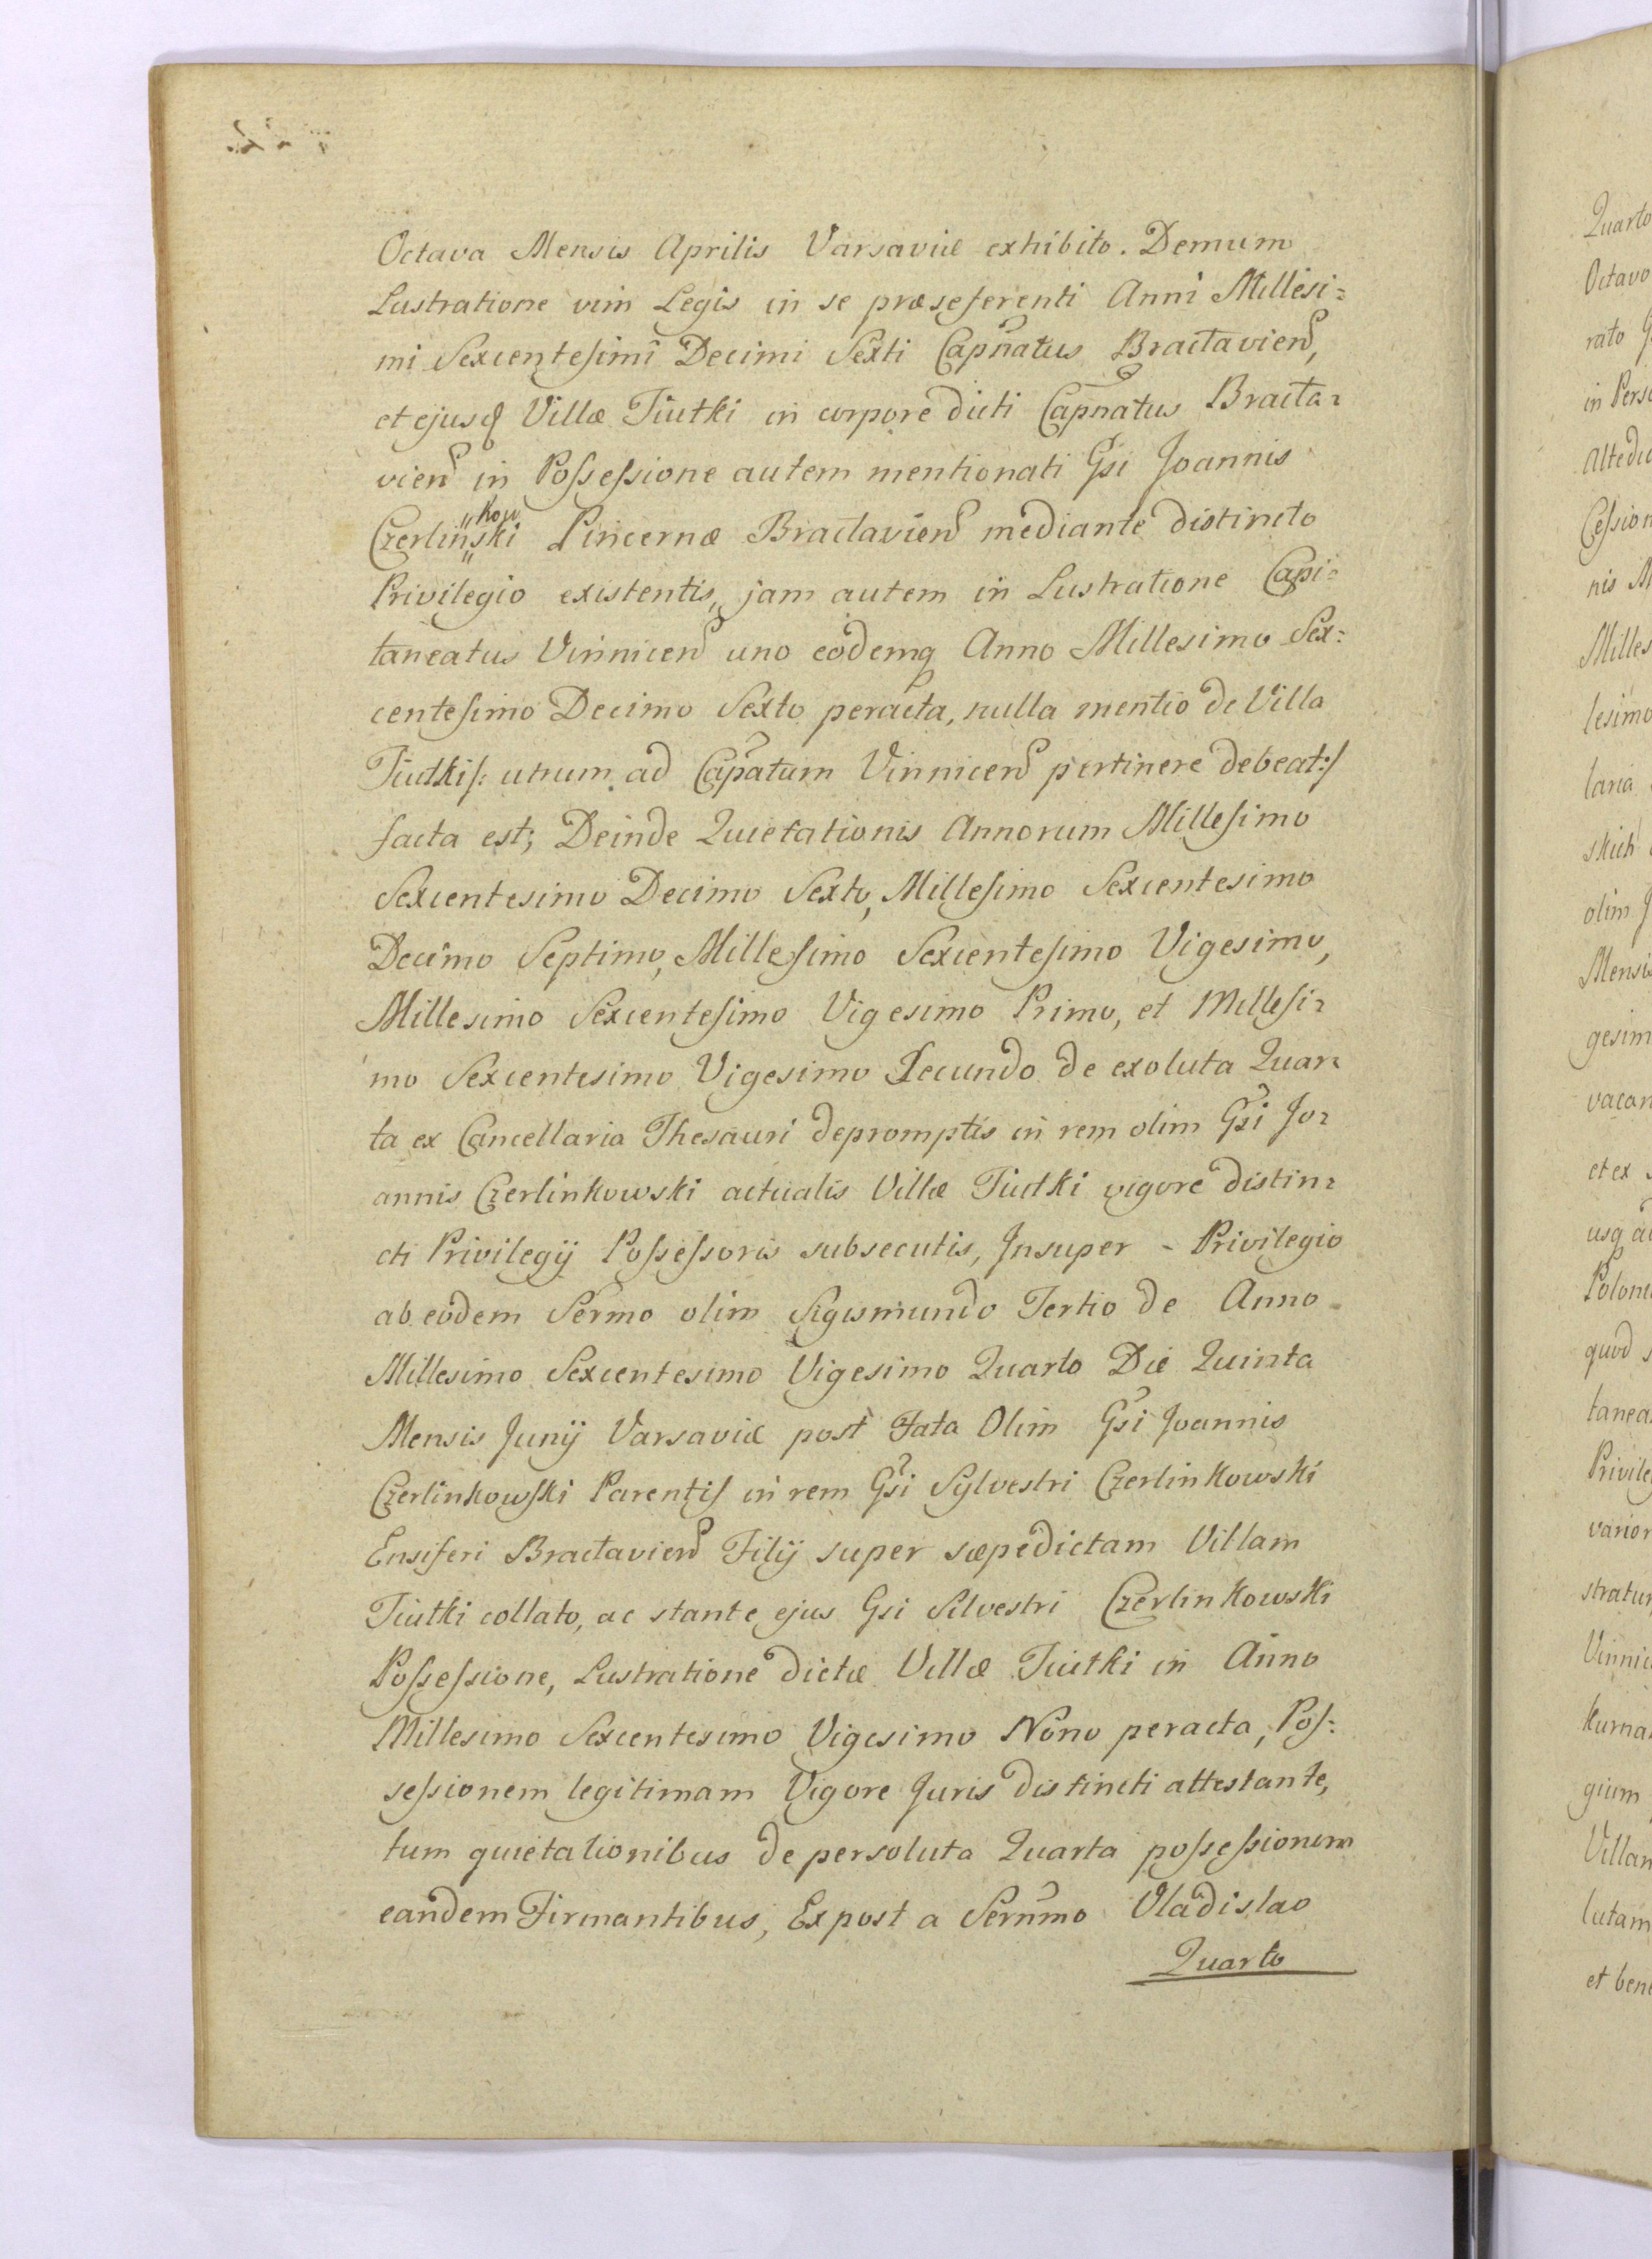 Octava Mensis Aprilis Varsaviæ exhibito. Demum
Lustratione vim Legis in se præseferenti Anni Millesi=
mi Sexcentesimi Decimi Sexti Capnatus Bractavien,
et ejusq Villæ Tiutki in corpore dicti Capnatus Bracta=
vien in Possessione autem mentionati Gsi Joannis
kow
Czerlin"ski Pincernæ Bractavien mediante distincto
Privilegio existentis, jam autem in Lustratione Capi=
taneatus Vinnicen uno eodemq Anno Millesimo Sex=
centesimo Decimo Sexto peracta, nulla mentio de Villa
Tiutki /: utrum ad Capatum Vinnicen pertinere debeat :/
facta est; Deinde Quietationis Annorum Millesimo
Sexcentesimo Decimo Sexto, Millesimo Sexcentesimo
Decimo Septimo, Millesimo Sexcentesimo Vigesimo,
Millesimo Sexcentesimo Vigesimo Primo, et Millesi=
mo Sexcentesimo Vigesimo Secundo de exoluta Quar=
ta ex Cancellaria Thesauri depromptis in rem olim Gsi Jo=
annis Czerlinkowski actualis Villæ Tiutki vigore distin=
cti Privilegij Possessoris subsecutis, Insuper - Privilegio
ab eodem Sermo olim Sigismundo Tertio de Anno
Millesimo Sexcentesimo Vigesimo Quarto Die Quinta
Mensis Junij Varsaviæ post Fata Olim Gsi Joannis
Czerlinkowski Parentis in rem Gsi Sylvestri Czerlinkowski
Ensiferi Bractavien Filij super sæpedictam Villam
Tiutki collato, ac stante ejus Gsi Silvestri Czerlinkowski
Possessione, Lustratione dictæ Villæ Tiutki in Anno
Millesimo Sexcentesimo Vigesimo Nono peracta, Pos=
sessionem legitimam Vigore Juris distincti attestante,
tum quietationibus de persoluta Quarta possessionem
eandem Firmantibus, Expost a Sernmo Vladislao
Quarto
Quarto
Octavo
rato
in Perso
altedic
Cession
nis M
Milles
lesimo
laria
skich
olim J
Mensis
gesim
vacan
et ex
usq ad
Poloni
quod
tanea
Privile
varior
stratu
Vinnic
kurna
gium
Villam
lutam
et bene